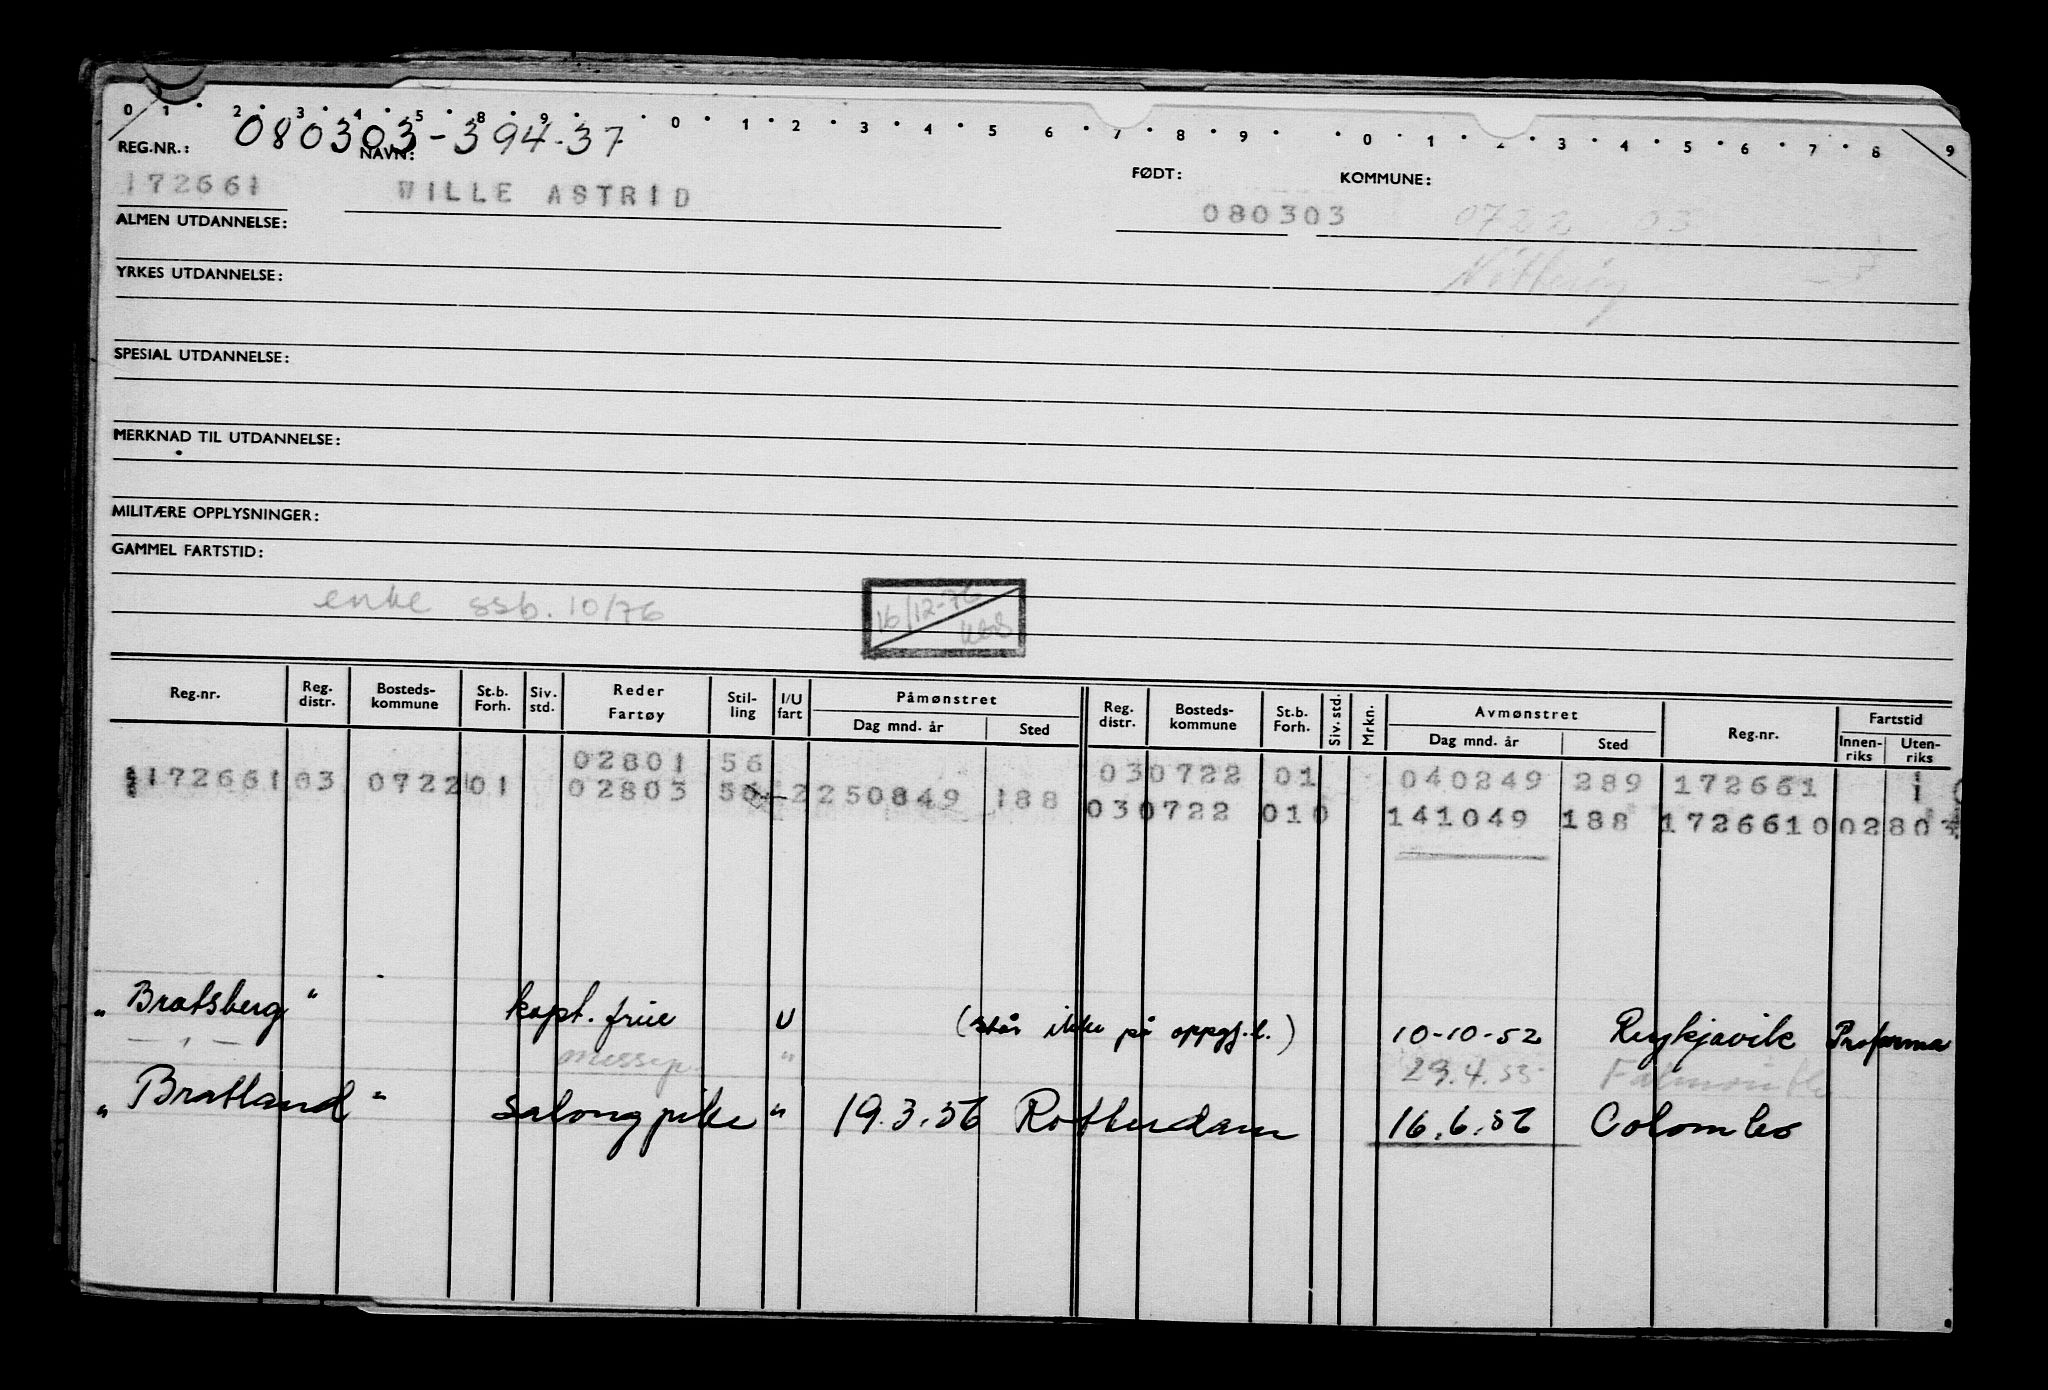 0 1 2 3 4 5 8 9 0 1 2 3 4 5 6 7 8 9 0 1 2 3 4 5 6 7 8 9
080303-394-37
REG.NR.: NAVN: FØDT: KOMMUNE:
172661 WILLE ASTRID 080303 0722 03
ALMEN UTDANNELSE:
Nøtterøy
YRKES UTDANNELSE:
SPESIAL UTDANNELSE:
MERKNAD TIL UTDANNELSE:
MILITÆRE OPPLYSNINGER:
GAMMEL FARTSTID:
enke ssb. 10/76 16/12-76
Reg.nr. Reg. distr. Bosteds-kommune St.b. Forh. Siv. std. Reder Fartøy Stil-ling I/U fart Påmønstret Dag mnd. år Sted Reg. distr. Bosteds-kommune St.b. Forh. Siv. std. Mrkn. Avmønstret Dag mnd. år Sted Reg.nr. Fartstid Innen-riks Uten-riks
02801 56 030722 01 040249 289 172661 1
172661 03 0722 01 02803 2 250849 188 030722 010 141049 188 1726610 02803
"Bratsberg" kapt. frue U (står ikke på oppgj.l.) 10-10-52 Reykjavik Proforma
- " - messep. " 29.4.55 Falmouth
"Bratland" salongpike " 19.3.56 Rotterdam 16.6.56 Colombo